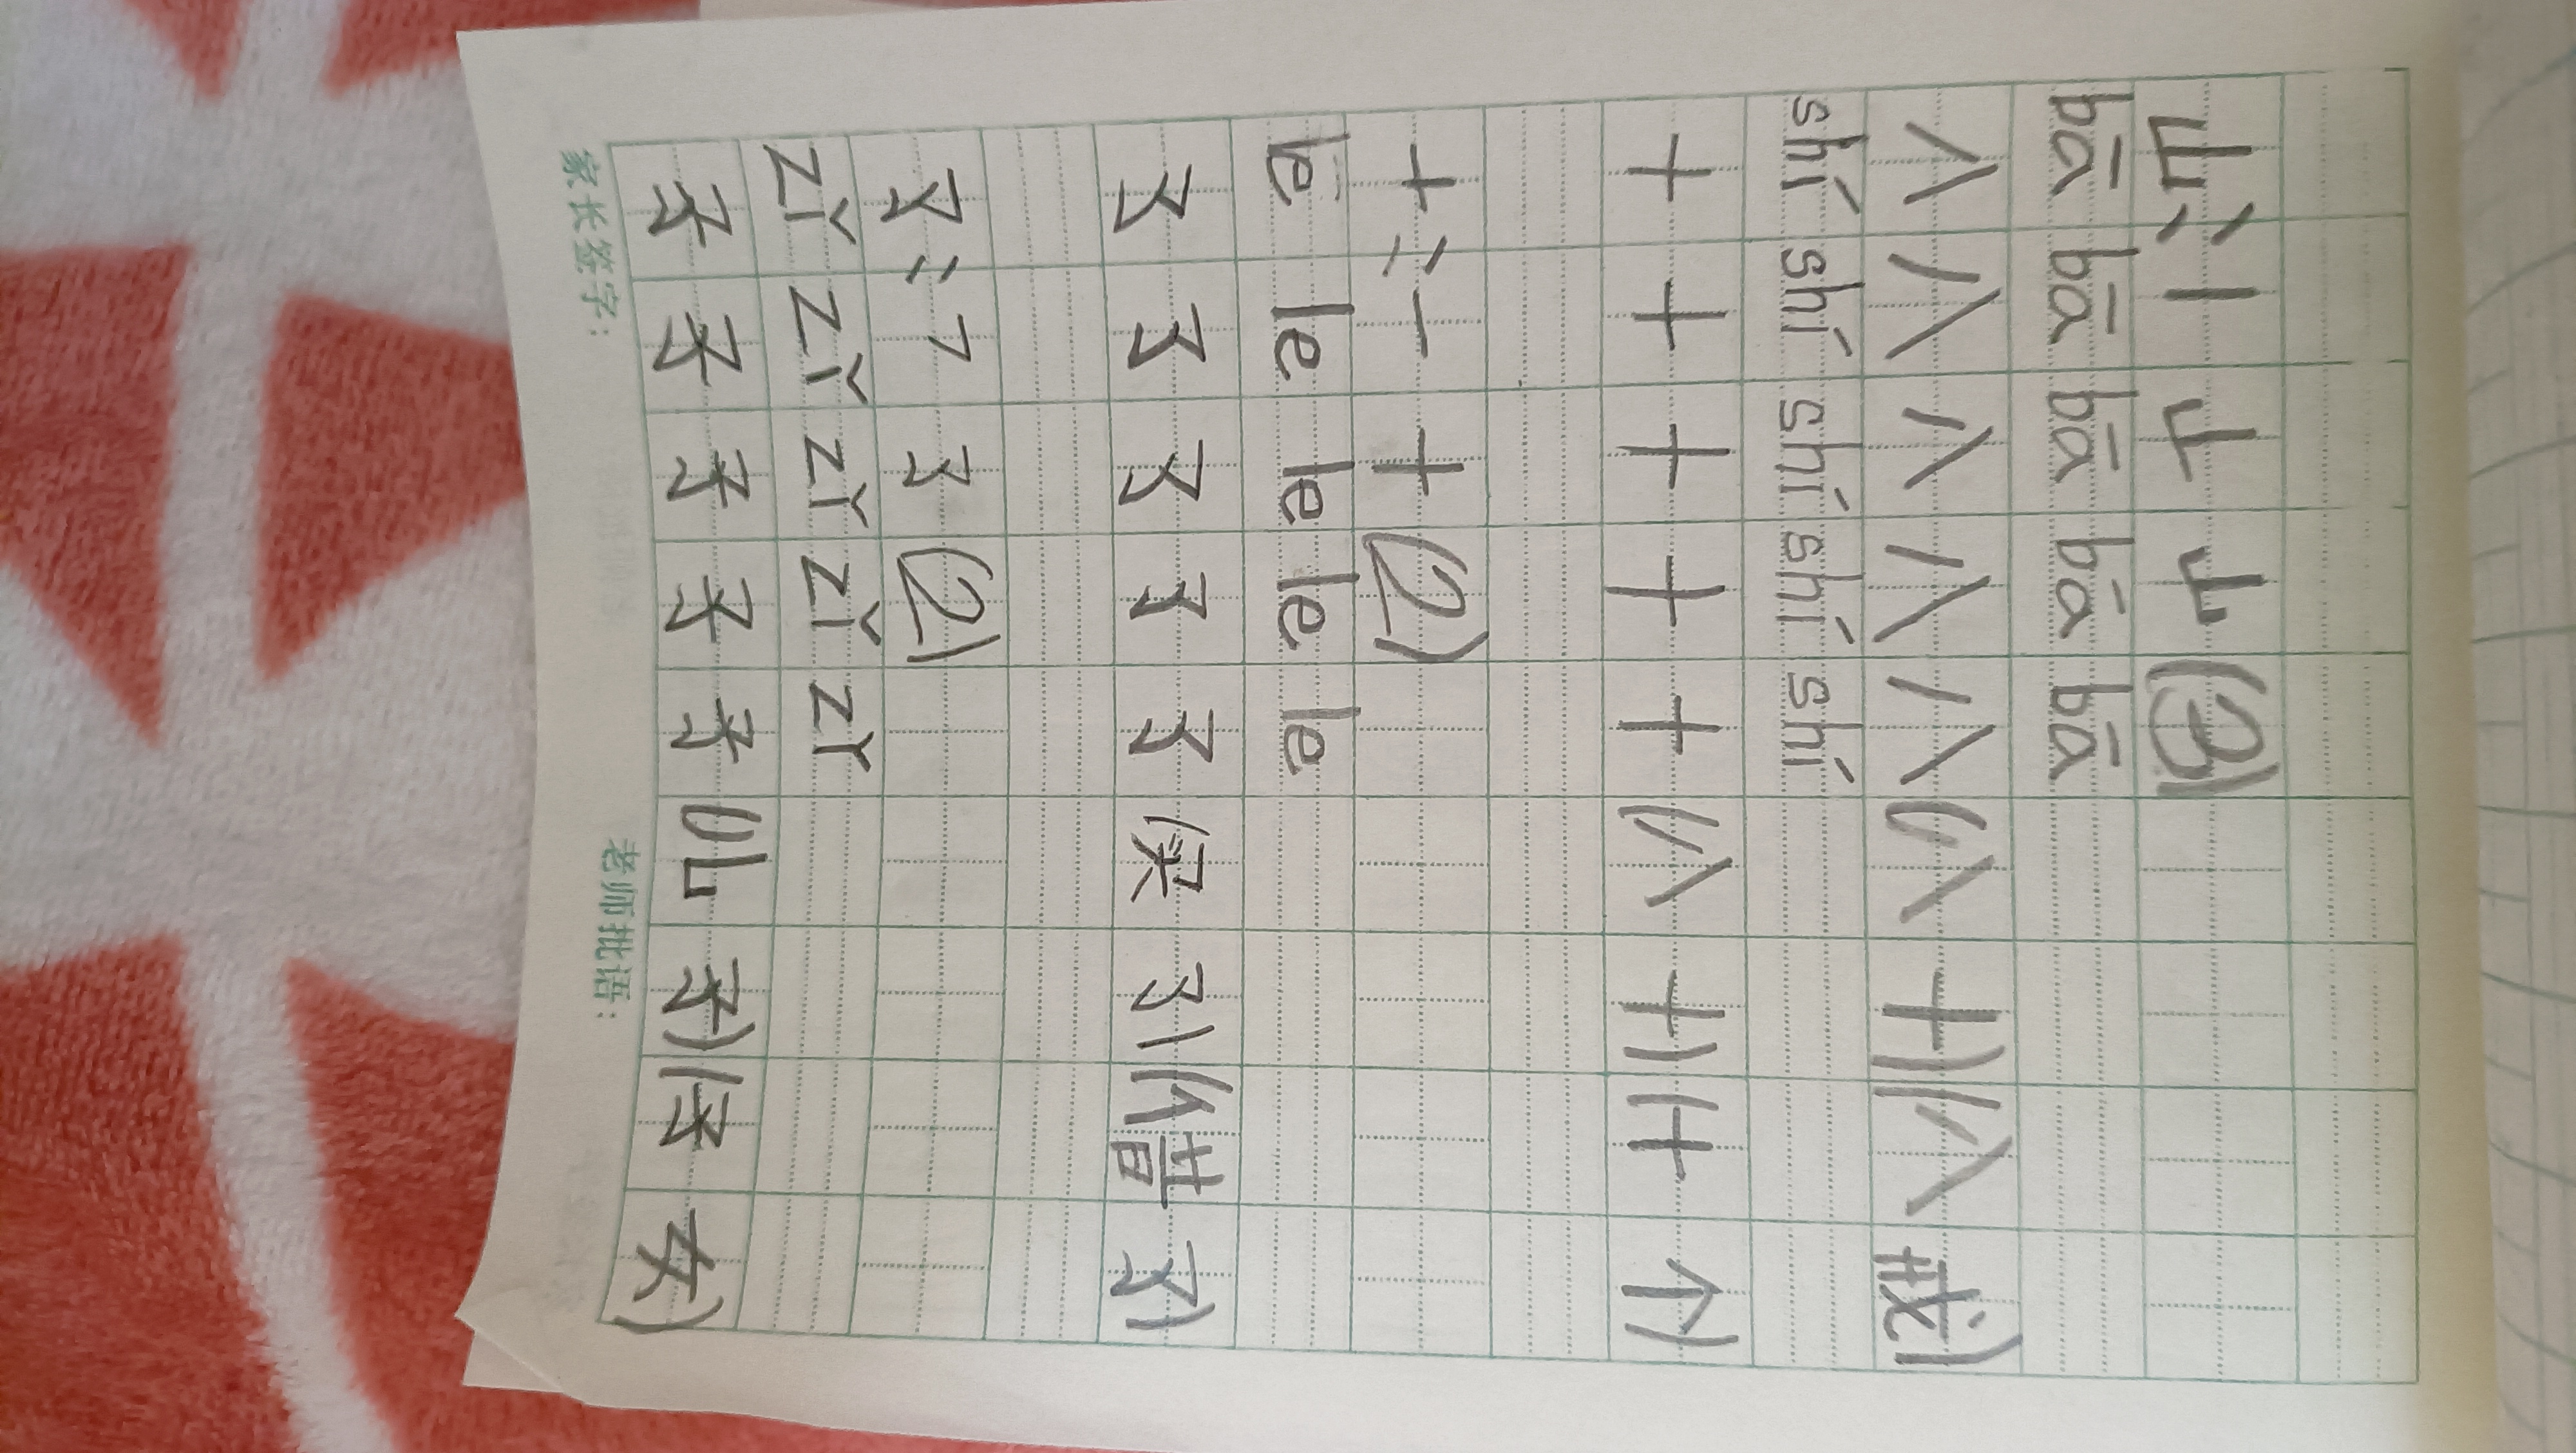 山：丨 (3)
bā bā bā bā bā
八 八 八 八 八 (八十) (八戒)
shí shí shí shí shí
十 十 十 十 十 (八十) (十个)
十：一 十 (2)
le le le le le
了 了 了 了 了 (来了) (错了)
了：㇇ 了 (2)
zǐ zǐ zǐ zǐ zǐ
子 子 子 子 子 (儿子) (子女)
家长签字： 老师批语：